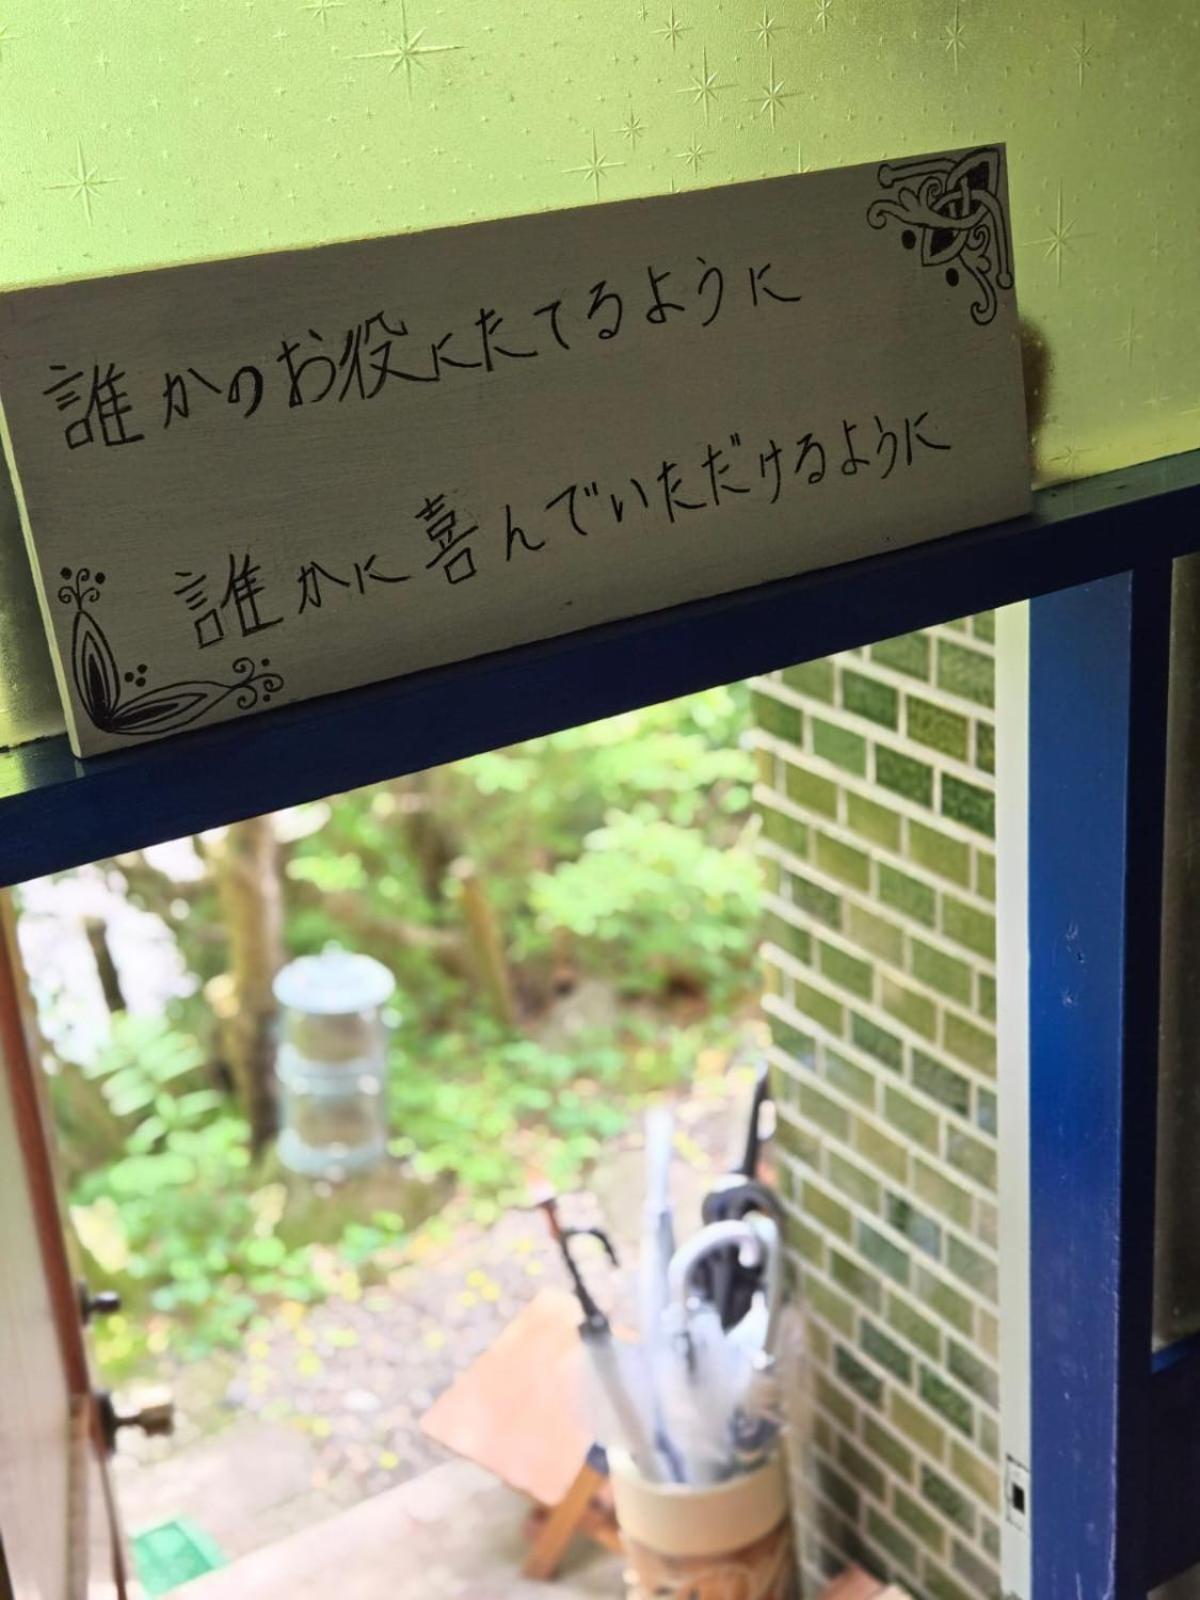 誰かのお役にたてるように
誰かに喜んでいただけるように